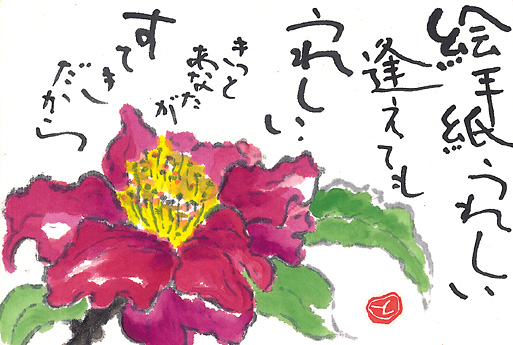 絵手紙うれしい
逢えても
うれしい
きっと
あなたが
すてき
だから
と